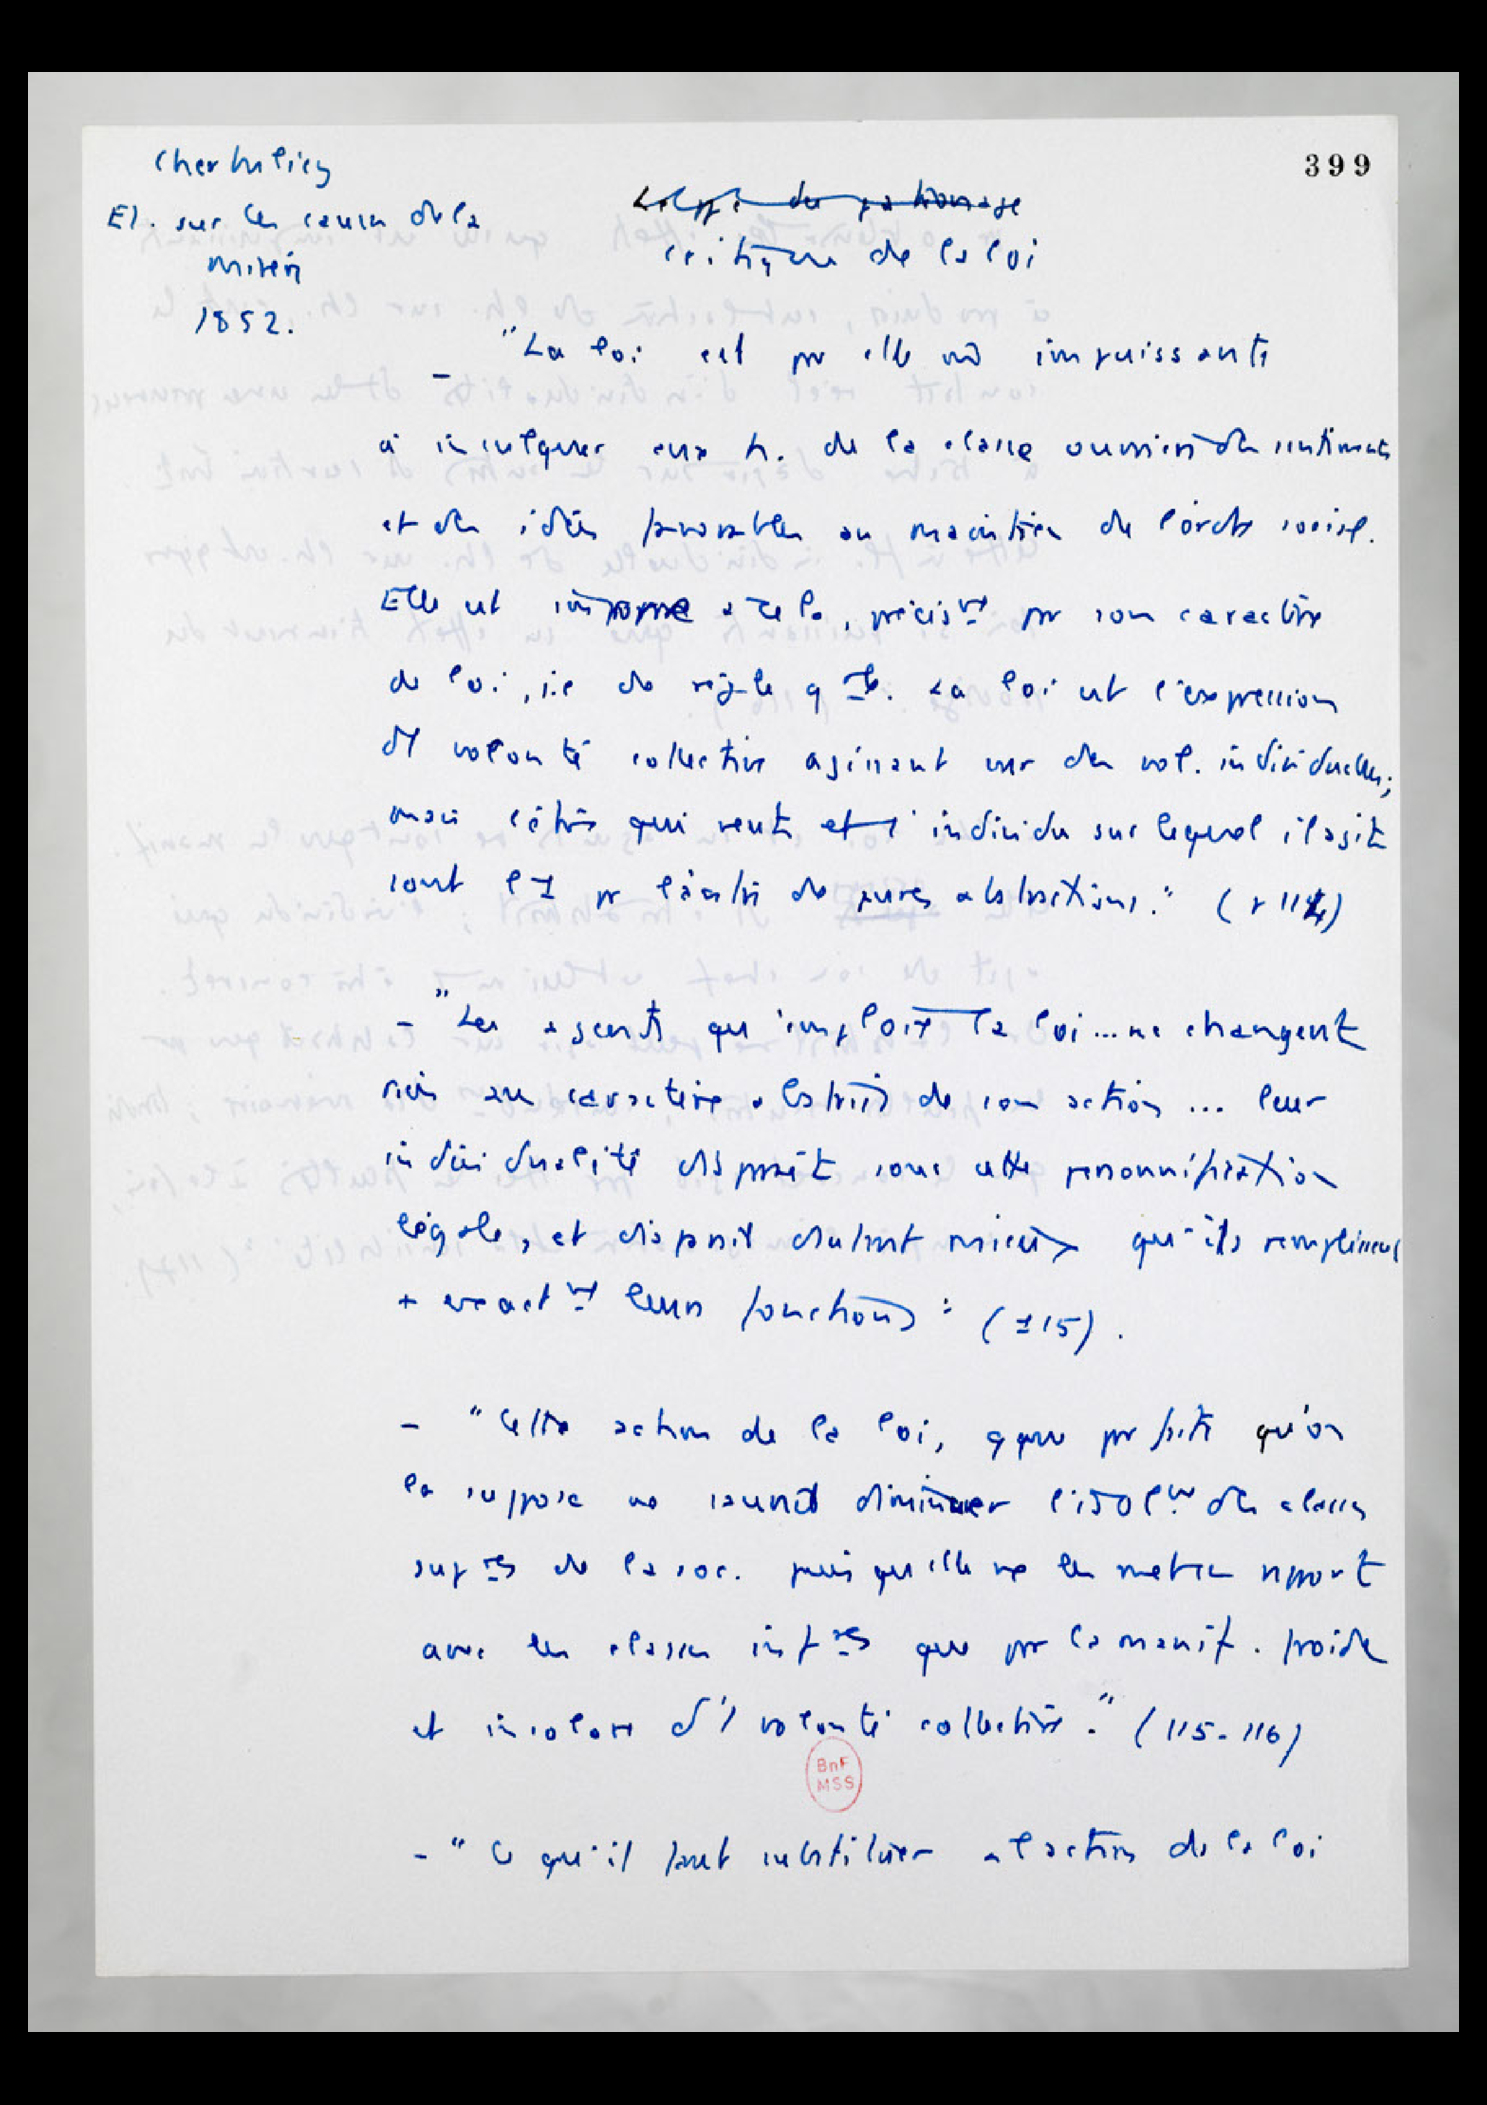 399
Cherbuliez
Et. sur les causes de la
misère
1852.
L'effet du patronage
critique de la loi
_ "La loi est par elle même impuissante
à inculquer aux h. de la classe ouvrière des sentiments
et des idées favorables au maintien de l'ordre social.
Elle est impropre à cela, précisᵗ par son caractère
de loi, i.e de règle gᵃˡᵉ. La loi est l'expression
d'1 volonté collective agissant sur des vol. individuelles;
mais l'être qui veut et l'individu sur lequel il agit
sont l'1 et l'autre de pures abstractions." (p 114)
- "Les agents qu'emploie la loi... ne changent
rien au caractère abstrait de son action ... leur
individualité disparaît sous cette personnification
légale, et disparaît d'autant mieux qu'ils remplissent
+ exactᵗ leurs fonctions" (115).
- "Cette action de la loi, qque parfaite qu'on
la suppose ne saurait diminuer l'isolᵗ des classes
supʳᵉˢ de la soc. puisqu'elle ne les met en rapport
avec les classes infʳᵉˢ que par la manif. froide
et incolore d'1 volonté collective." (115-116)
BnF
MSS
- "Ce qu'il faut substituer à l'action de la loi